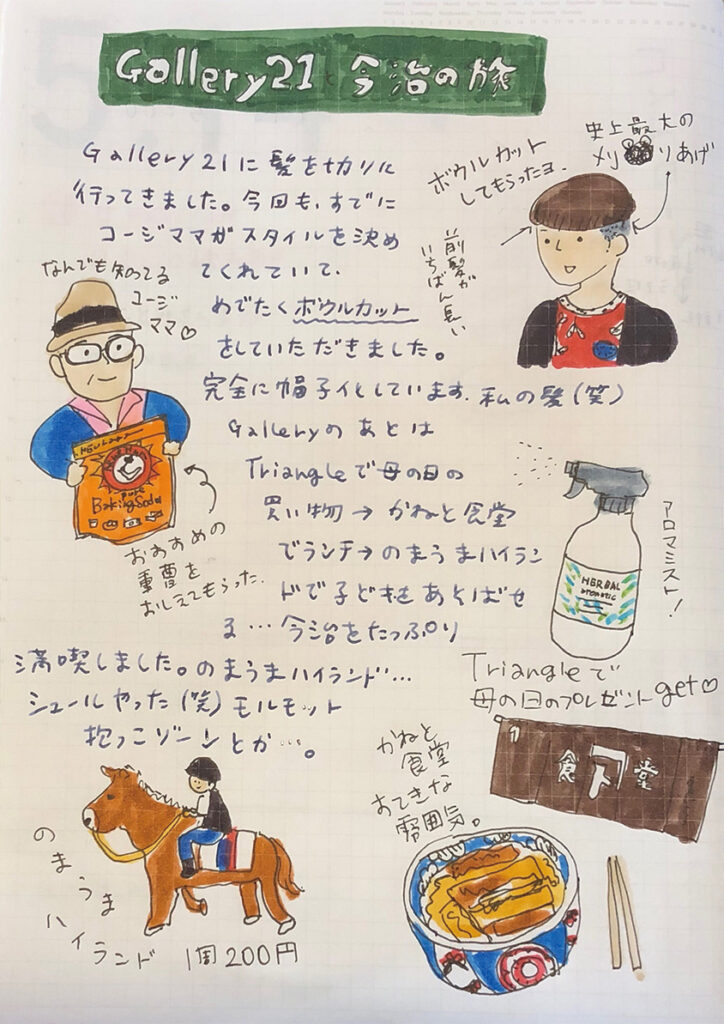 Gallery21と今治の旅
Gallery21に髪を切りに
行ってきました。今回も、すでに
コージママがスタイルを決め
てくれていて、
めでたくボウルカット
をしていただきました。
完全に帽子化しています、私の髪(笑)
Galleryのあとは
Triangleで母の日の
買い物→かねと食堂
でランチ→のまうまハイラン
ドで子ども達をあそばせ
る…今治をたっぷり
満喫しました。のまうまハイランド…
シュールやった(笑)モルモット
抱っこゾーンとか…。
ボウルカット
してもらったヨ.
史上最大の
メリ
りあげ
前髪が
いちばん長い
なんでも知ってる
コージ
ママ♡
pure
Baking Soda
おすすめの
重曹を
おしえてもらった.
アロマミスト!
HERBAL
Triangleで
母の日のプレゼントget♡
かねと
食堂
おてきな
雰囲気。
食
堂
のまうま
ハイランド
1周200円